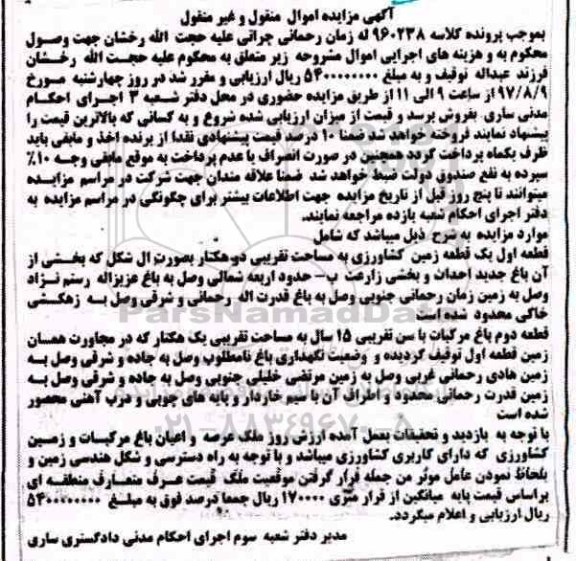 آگهی مزایده اموال منقول و غیر منقول
بموجب پرونده کلاسه ۹۶۰۲۳۸ له زمان رحمانی چراتی علیه حجت الله رخشان جهت وصول
محکوم به و هزینه های اجرایی اموال مشروحه زیر متعلق به محکوم علیه حجت الله رخشان
فرزند عبداله توقیف و به مبلغ ۵۴۰۰۰۰۰۰۰۰ ریال ارزیابی و مقرر شد در روز چهارشنبه مورخ
۹۷/۸/۹ از ساعت ۹ الی ۱۱ از طریق مزایده حضوری در محل دفتر شعبه ۳ اجرای احکام
مدنی ساری بفروش برسد و قیمت از میزان ارزیابی شده شروع و به کسانی که بالاترین قیمت را
پیشنهاد نمایند فروخته خواهد شد ضمنا ۱۰ درصد قیمت پیشنهادی نقدا از برنده اخذ و مابقی باید
ظرف یکماه پرداخت گردد همچنین در صورت انصراف یا عدم پرداخت به موقع مابقی وجه ۱۰٪
سپرده به نفع صندوق دولت ضبط خواهد شد ضمنا علاقه مندان جهت شرکت در مراسم مزایده
میتوانند تا پنج روز قبل از تاریخ مزایده جهت اطلاعات بیشتر برای چگونگی در مراسم مزایده به
دفتر اجرای احکام شعبه یازده مراجعه نمایند.
موارد مزایده به شرح ذیل میباشد که شامل
قطعه اول یک قطعه زمین کشاورزی به مساحت تقریبی دو هکتار بصورت ال شکل که بخشی از
آن باغ جدید احداث و بخشی زارعت ب- حدود اربعه شمالی وصل به باغ عزیزاله رستم نژاد
وصل به زمین زمان رحمانی جنوبی وصل به باغ قدرت اله رحمانی و شرقی وصل به زهکشی
خاکی محدود شده است
قطعه دوم باغ مرکبات با سن تقریبی ۱۵ سال به مساحت تقریبی یک هکتار که در مجاورت همسان
زمین قطعه اول توقیف گردیده و وضعیت نگهداری باغ نامطلوب وصل به جاده و شرقی وصل به
زمین هادی رحمانی غربی وصل به زمین مرتضی خلیلی جنوبی وصل به جاده و شرقی وصل به
زمین قدرت رحمانی محدود و اطراف آن با سیم خاردار و پایه های چوبی و درب آهنی محصور
شده است
با توجه به بازدید و تحقیقات بعمل آمده ارزش روز ملک عرصه و اعیان باغ مرکبات و زمین
کشاورزی که دارای کاربری کشاورزی میباشد و با توجه به راه دسترسی و شکل هندسی زمین و
بلحاظ نمودن عامل موثر من جمله قرار گرفتن موقعیت ملک قیمت عرف متعارف منطقه ای
براساس قیمت پایه میانگین از قرار متری ۱۷۰۰۰۰ ریال جمعا درصد فوق به مبلغ ۵۴۰۰۰۰۰۰۰۰
ریال ارزیابی و اعلام میگردد.
مدیر دفتر شعبه سوم اجرای احکام مدنی دادگستری ساری
ParsNamadData
۰۲۱-۸۸۳۴۹۶۷۰-۵